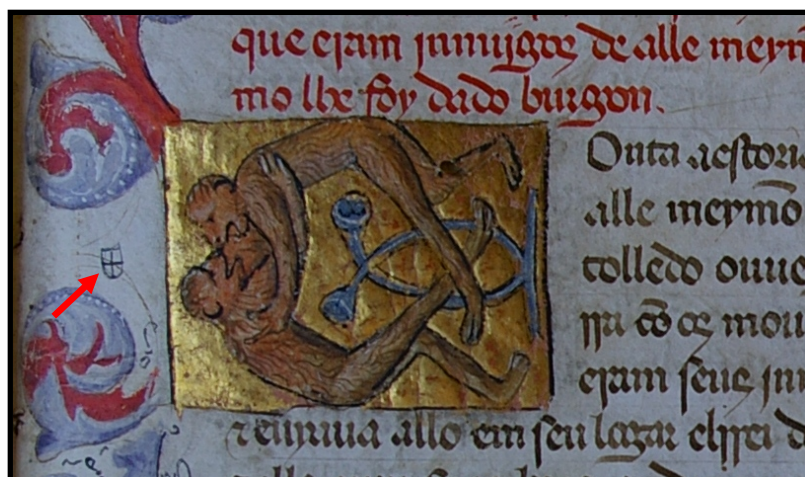 que eram inmijgos de alle meym
mo lhe foy dado burgon.
Onta a estori
alle meymõ
tolledo ouue
rra cõ os mou
eram seus jnı
e enuiua allo em seu logar elrrei d